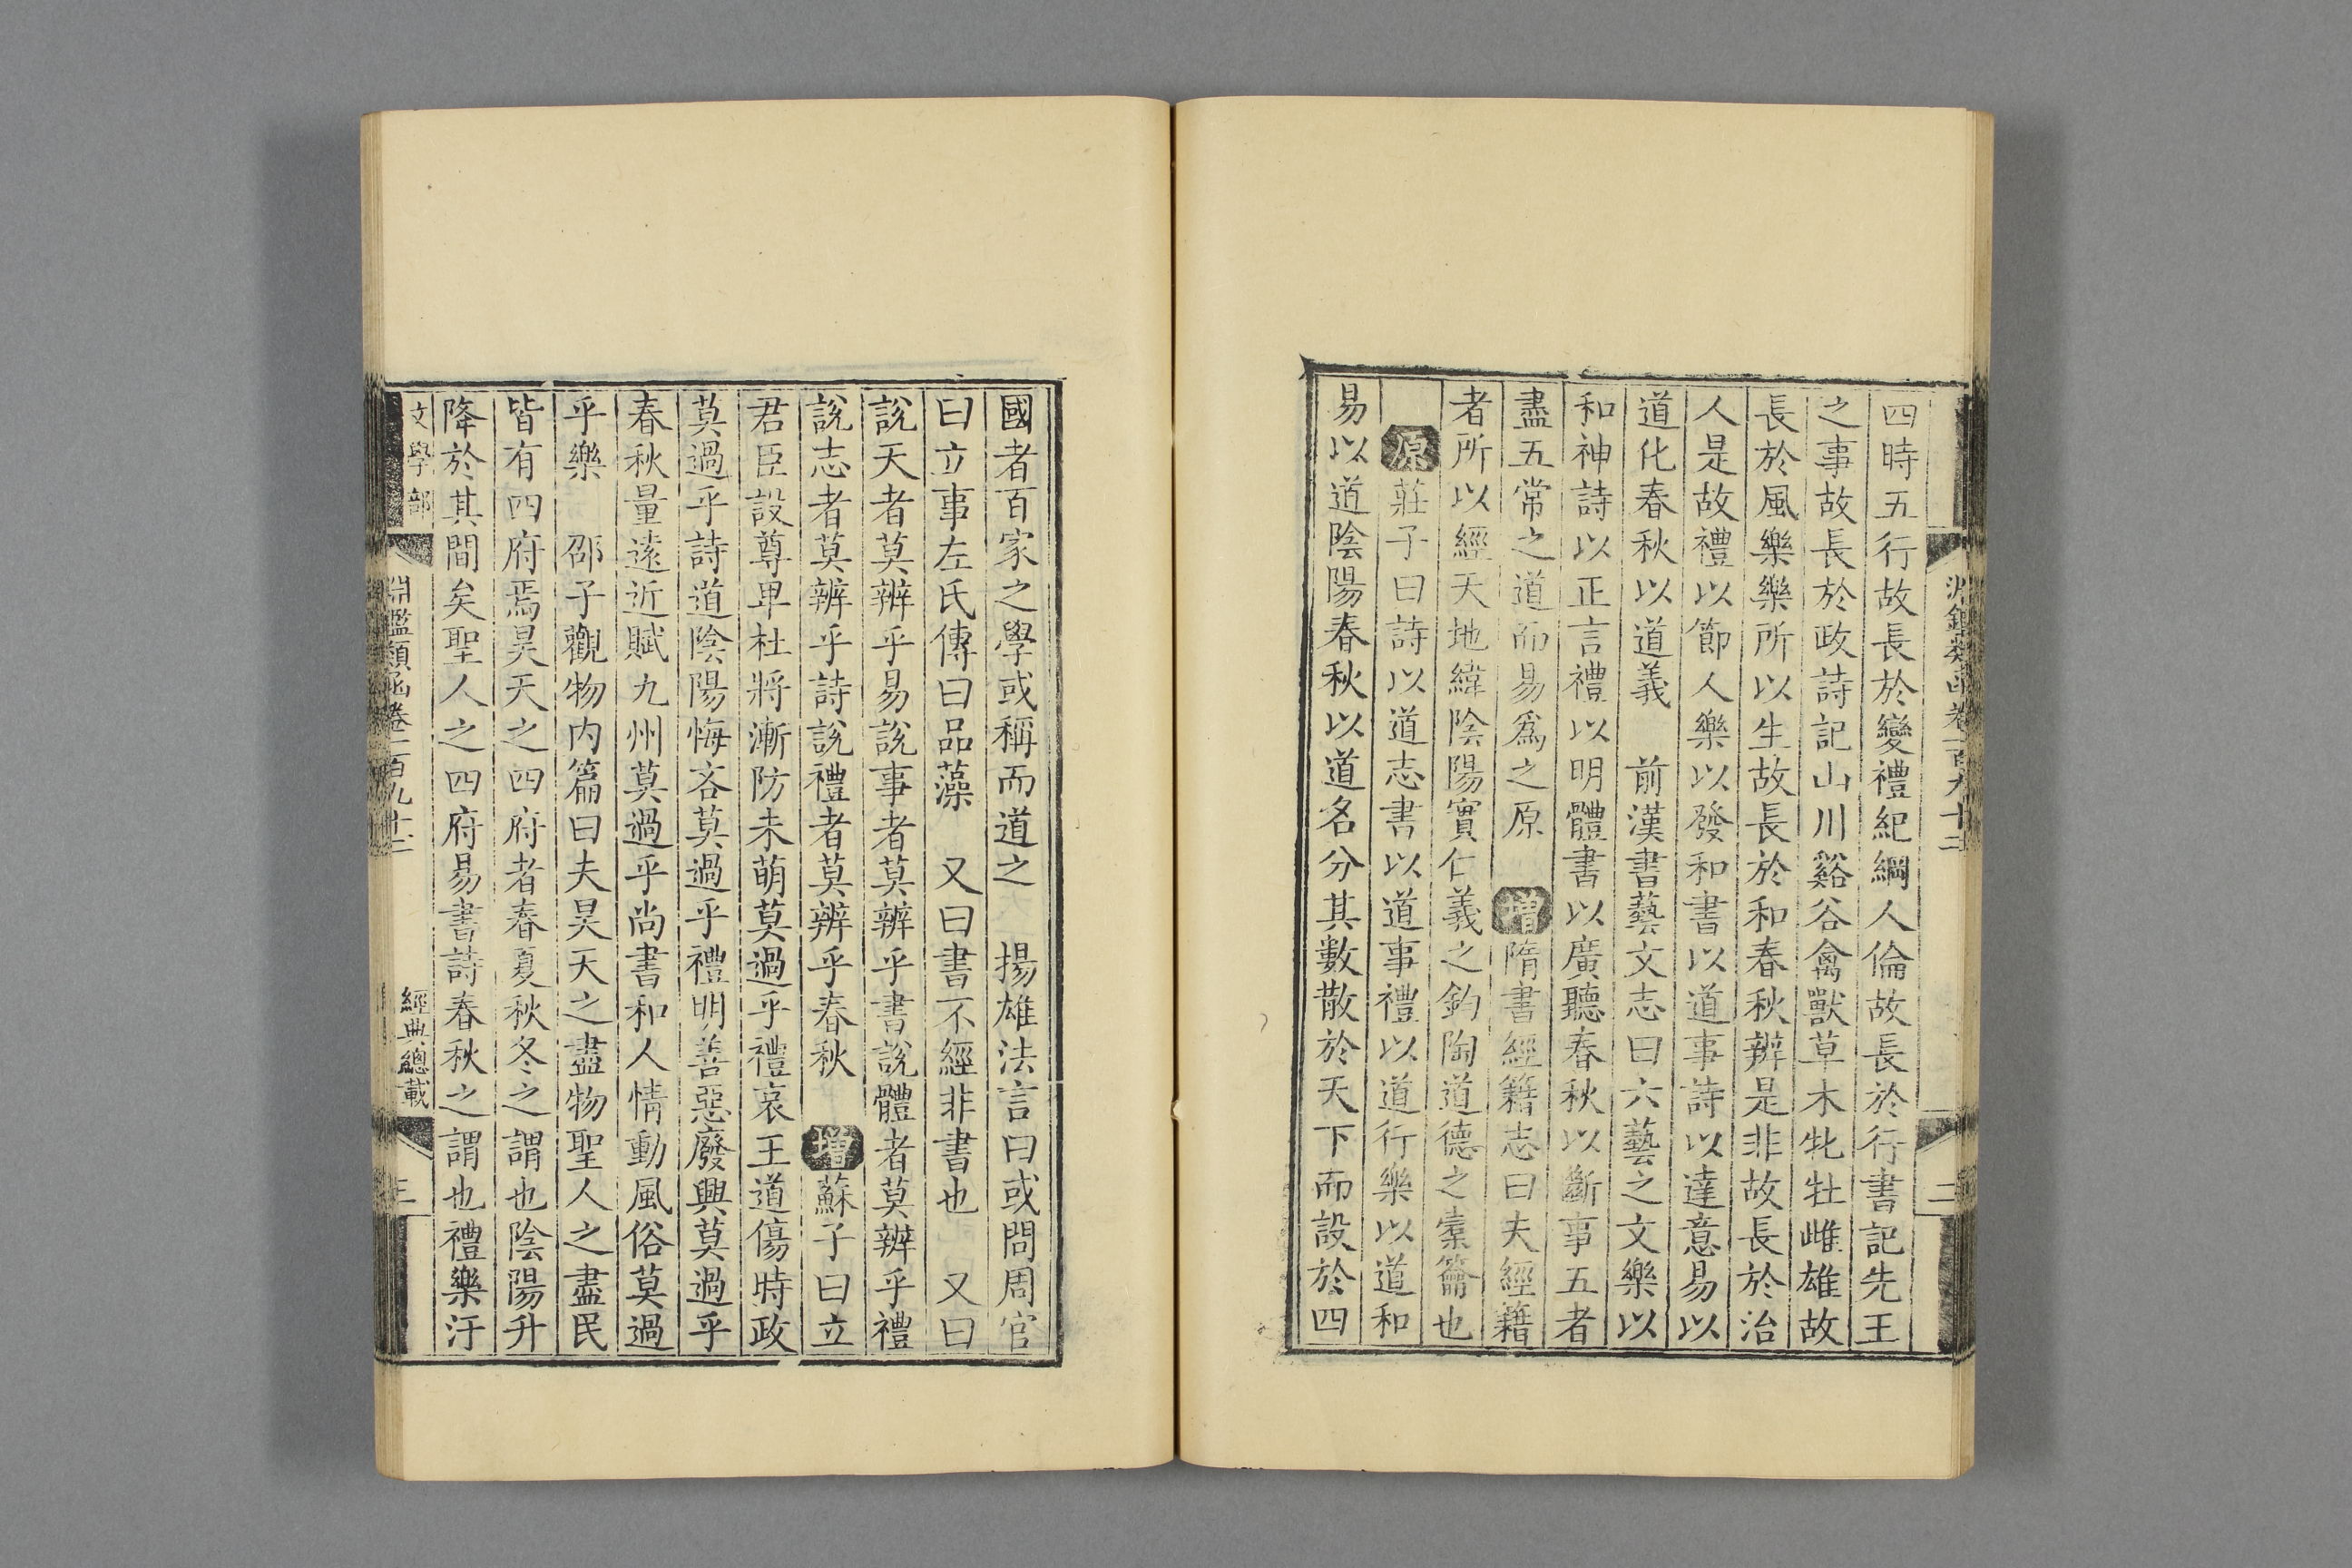 淵鑑類函卷一百九十二
二
四時五行故長於變禮紀綱人倫故長於行書記先王
之事故長於政詩記山川谿谷禽獸草木牝牡雌雄故
長於風樂樂所以生故長於和春秋辨是非故長於治
人是故禮以節人樂以發和書以道事詩以達意易以
道化春秋以道義 前漢書藝文志曰六藝之文樂以
和神詩以正言禮以明體書以廣聽春秋以斷事五者
盡五常之道而易爲之原 增隋書經籍志曰夫經籍
者所以經天地緯陰陽實仁義之鈞陶道德之橐籥也
原莊子曰詩以道志書以道事禮以道行樂以道和
易以道陰陽春秋以道名分其數散於天下而設於四
國者百家之學或稱而道之 揚雄法言曰或問周官
曰立事左氏傳曰品藻 又曰書不經非書也 又曰
說天者莫辨乎易說事者莫辨乎書說體者莫辨乎禮
說志者莫辨乎詩說禮者莫辨乎春秋 增蘇子曰立
君臣設尊卑杜將漸防未萌莫過乎禮哀王道傷時政
莫過乎詩道陰陽悔吝莫過乎禮明善惡廢興莫過乎
春秋量遠近賦九州莫過乎尚書和人情動風俗莫過
乎樂 邵子觀物內篇曰夫昊天之盡物聖人之盡民
皆有四府焉昊天之四府者春夏秋冬之謂也陰陽升
降於其間矣聖人之四府易書詩春秋之謂也禮樂汙
文學部
淵鑑類函卷一百九十二
經典總載
三